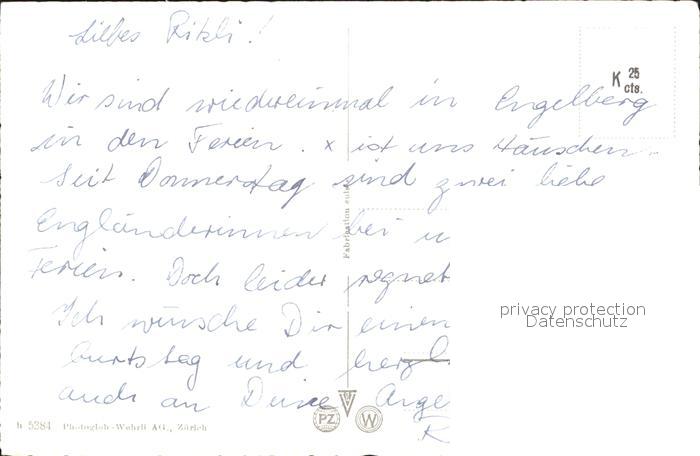 Liebes Ritzli!
K 25 cts.
Wir sind wiedereinmal in Engelberg
in den Ferien. x ist uns Häuschen.
Seit Donnerstag sind zwei liebe
Engländerinnen bei u
Ferien. Doch leider regnet
Ich wünsche Dir einen
burtstag und herzl
auch an Deine Ange
R
Fabrication suisse
privacy protection
Datenschutz
h 5384 Photoglob-Wehrli AG., Zürich
PZ
W